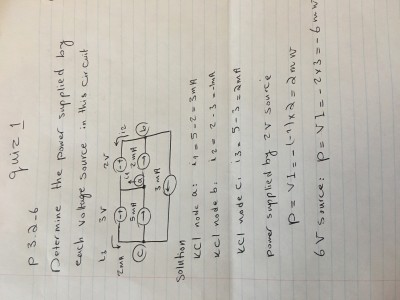 P 3.2-6 quiz 1
Determine the power supplied by
each voltage source in this circuit
i2 3V 2V i2
+ - - +
2mA 5mA 2mA
C a b
3mA
Solution
KCl node a: i1 = 5-2 = 3mA
KCl node b: i2 = 2-3 = -1mA
KCl node C: i3 = 5-3 = 2mA
Power supplied by 2V source
P = VI = -(-1)×2 = 2mW
6V source: P = VI = -2×3 = -6mW